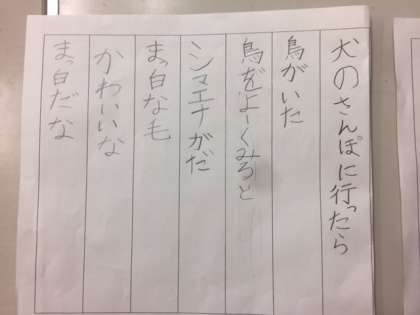 犬のさんぽに行ったら
鳥がいた
鳥をよーくみると
シマエナガだ
まっ白な毛
かわいいな
まっ白だな